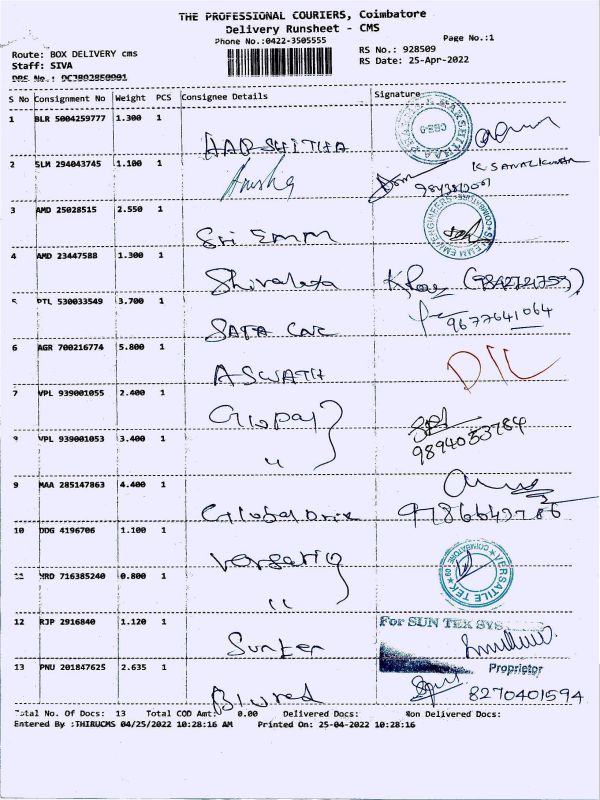 THE PROFESSIONAL COURIERS, Coimbatore
Delivery Runsheet - CMS
Phone No.:0422-3505555
Page No.:1
Route: BOX DELIVERY cms
RS No.: 928509
Staff: SIVA
RS Date: 25-Apr-2022
S No Consignment No Weight PCS Consignee Details Signature
1 BLR 5004259777 1.300 1
AARSHITHA
2 SLM 294043745 1.100 1
Anusha
K SANALKUMAR
3 AMD 25028515 2.550 1
Sri Emm
SALEM EMM ENGINEERS COIMBATORE
4 AMD 23447588 1.300 1
5 DTL 530033549 3.700 1
9677641064
6 AGR 700216774 5.800 1
ASWATH
DTL
7 VPL 939001055 2.400 1
Gopal
9894053784
VPL 939001053 3.400 1
"
9 MAA 285147863 4.400 1
10 DDG 4196706 1.100 1
VERSATILE TEK COIMBATORE
HRD 716385240 0.800 1
"
12 RJP 2916840 1.120 1
Suntek
For SUN TEK SYS
Proprietor
13 PNU 201847625 2.635 1
8270401594
Total No. Of Docs: 13 Total COD Amt: 0.00 Delivered Docs: Non Delivered Docs:
Entered By :THIRUCMS 04/25/2022 10:28:16 AM Printed On: 25-04-2022 10:28:16